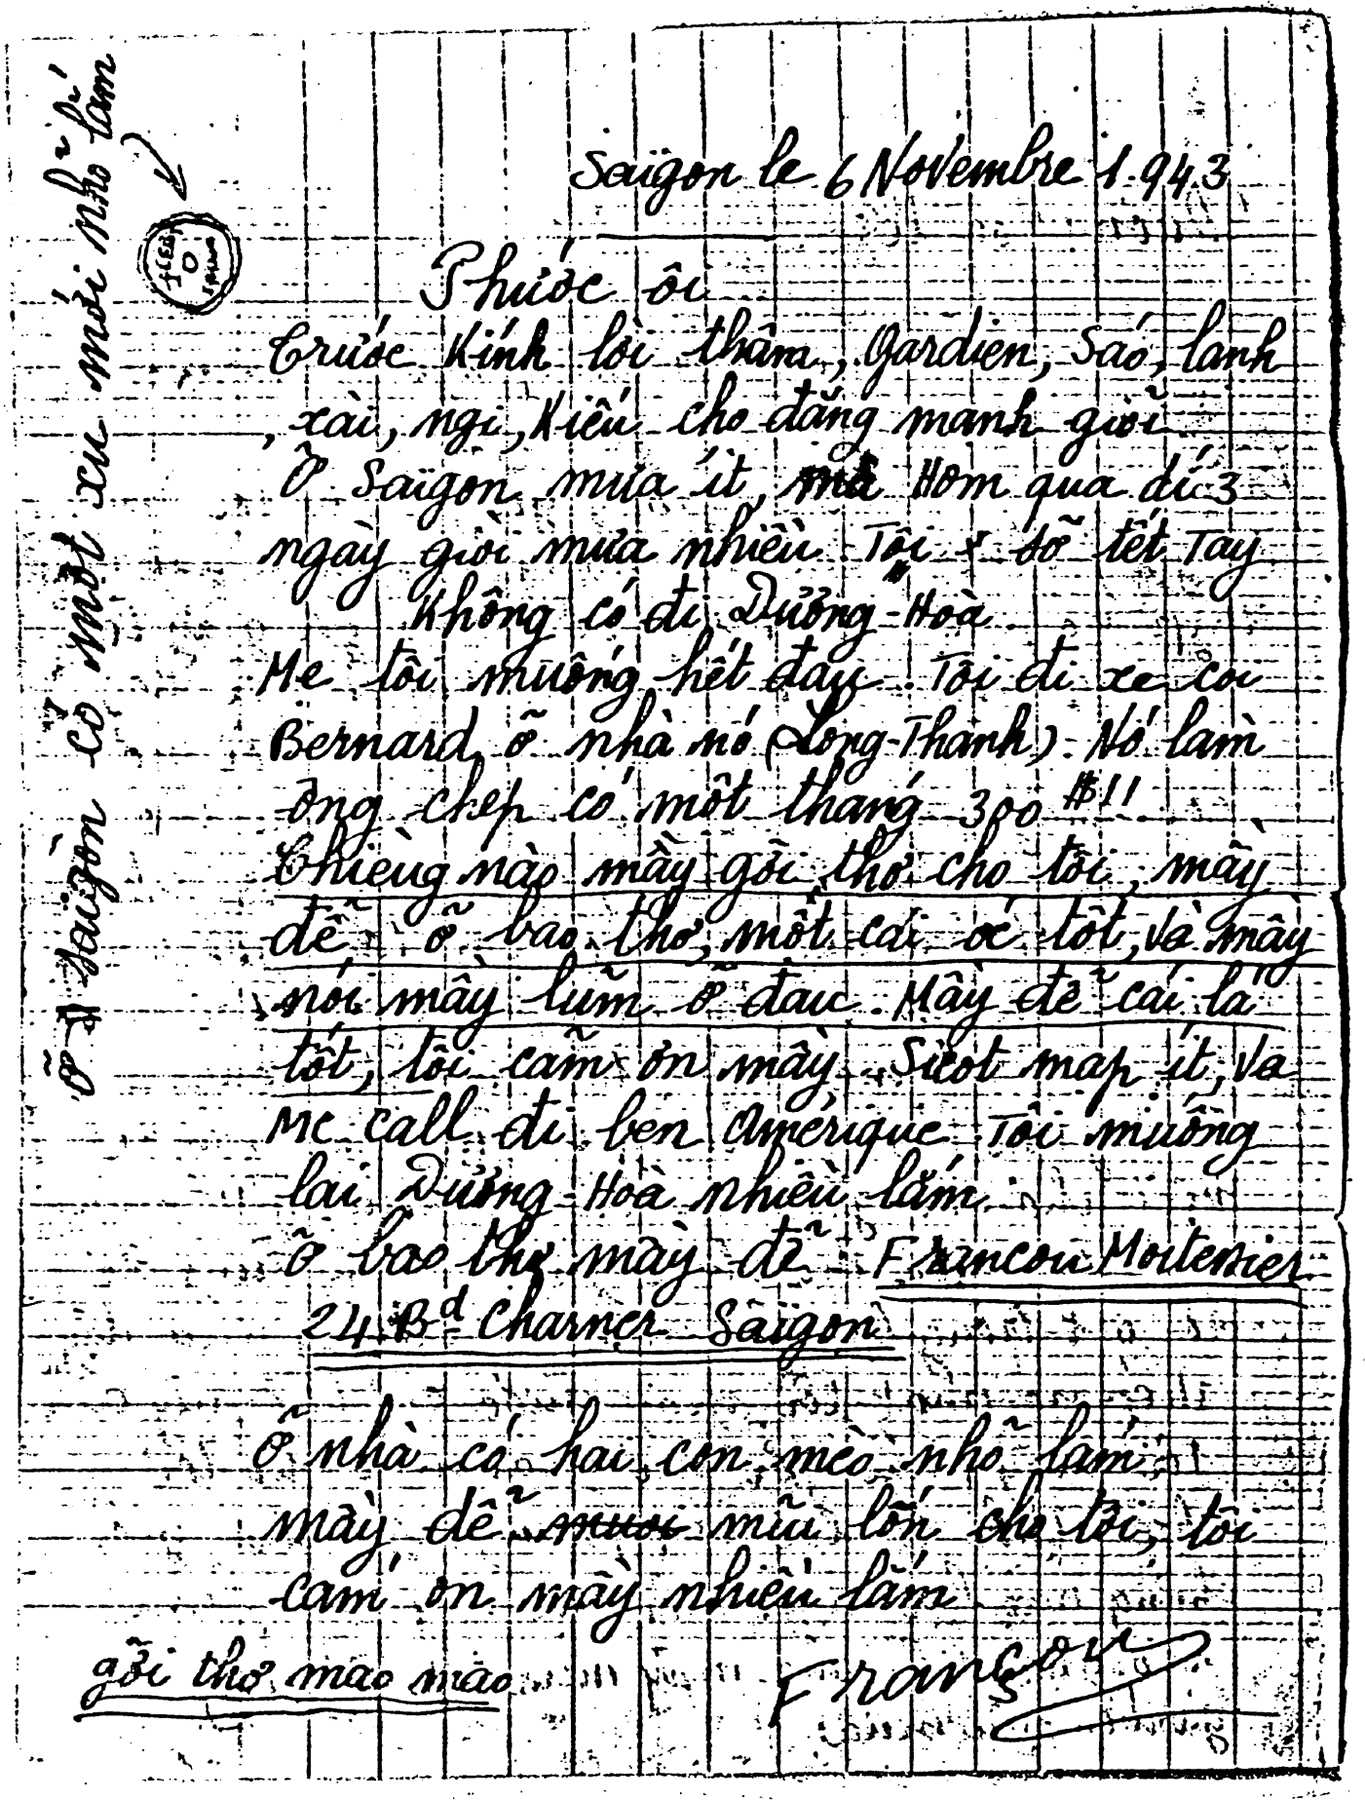 Saïgon le 6 Novembre 1.943
Phước ôi
Trước Kính lời thâm, Gardien, Sáo, lanh
, xài, ngi, Kiếu cho đăng manh giỏi
Ỡ Saïgon mưa ít, Hom qua dí 3
ngày giỏi mưa nhiều Tôi sỡ tết Tay
Không có đi Dương-Hoà
Me tôi muống hết đau. Tôi đi xe coi
Bernard ỡ nhà nó (Long-Thanh). Nó làm
ông chep có một thang 300 $!!
Chièug nào mầy gỗi thơ cho tôi, mầy
đễ ỡ bao thơ, một cái ốc tốt, và mầy
nói mầy lưm ỡ đau. Mầy đễ cái lá
tốt, tôi cãm ơn mầy, Sicot map ít, va
Mc Call đi ben Amérique Tôi muống
lai Dương-Hoà nhiều lắm
ỡ bao thơ mầy đễ Francou Moitessier
24 Bd Charner Saïgon
Ỡ nhà có hai con mèo nhõ lám
mầy đễ mũi lỡn cho tôi, tôi
cam ơn mầy nhiều lắm
gỗi thơ mao mao
Françou
Ỡ Saïgon cỏ một xu mới nhõ lí lám